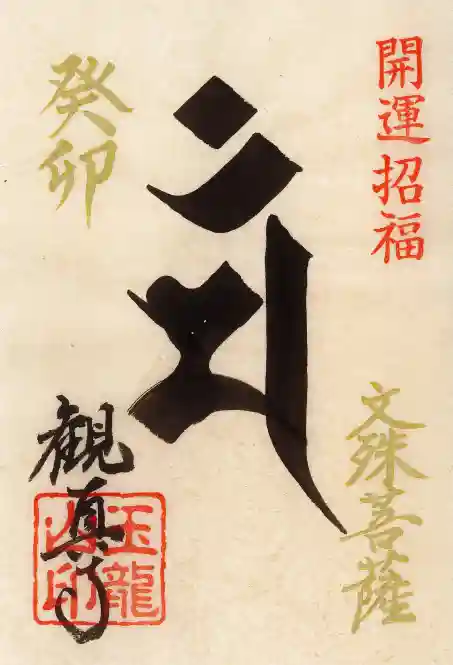 開運招福
文殊菩薩
अं
癸卯
観真寺
玉龍山印